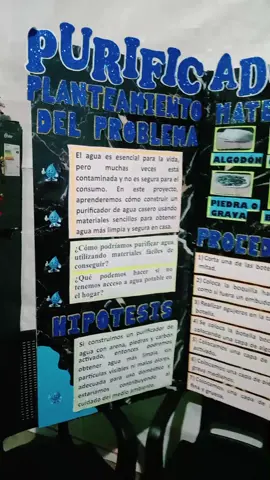 PURIFICAD
PLANTEAMIENTO
DEL PROBLEMA
El agua es esencial para la vida,
pero muchas veces está
contaminada y no es segura para el
consumo. En este proyecto,
aprenderemos cómo construir un
purificador de agua casero usando
materiales sencillos para obtener
agua más limpia y segura en casa.
¿Cómo podríamos purificar agua
utilizando materiales fáciles de
conseguir?
¿Qué podemos hacer si no
tenemos acceso a agua potable en
el hogar?
HIPOTESIS
Si construimos un purificador de
agua con arena, piedras y carbón
activado, entonces podremos
obtener agua más limpia, sin
partículas visibles ni malos olores,
adecuada para uso doméstico y
estaríamos contribuyendo al
cuidado del medio ambiente.
MATE
ALGODÓN
PIEDRA O
GRAVA
PROCE
1) Corta una de las bote
mitad.
2) Coloca la botella
como si fuera un embudo
3) Realizar agujeros en la
botella.
4) Se coloca la botella
5) Colocamos una capa de
6) Colocamos una capa de
grava mediana.
7) Colocamos una capa de
fina o gruesa.